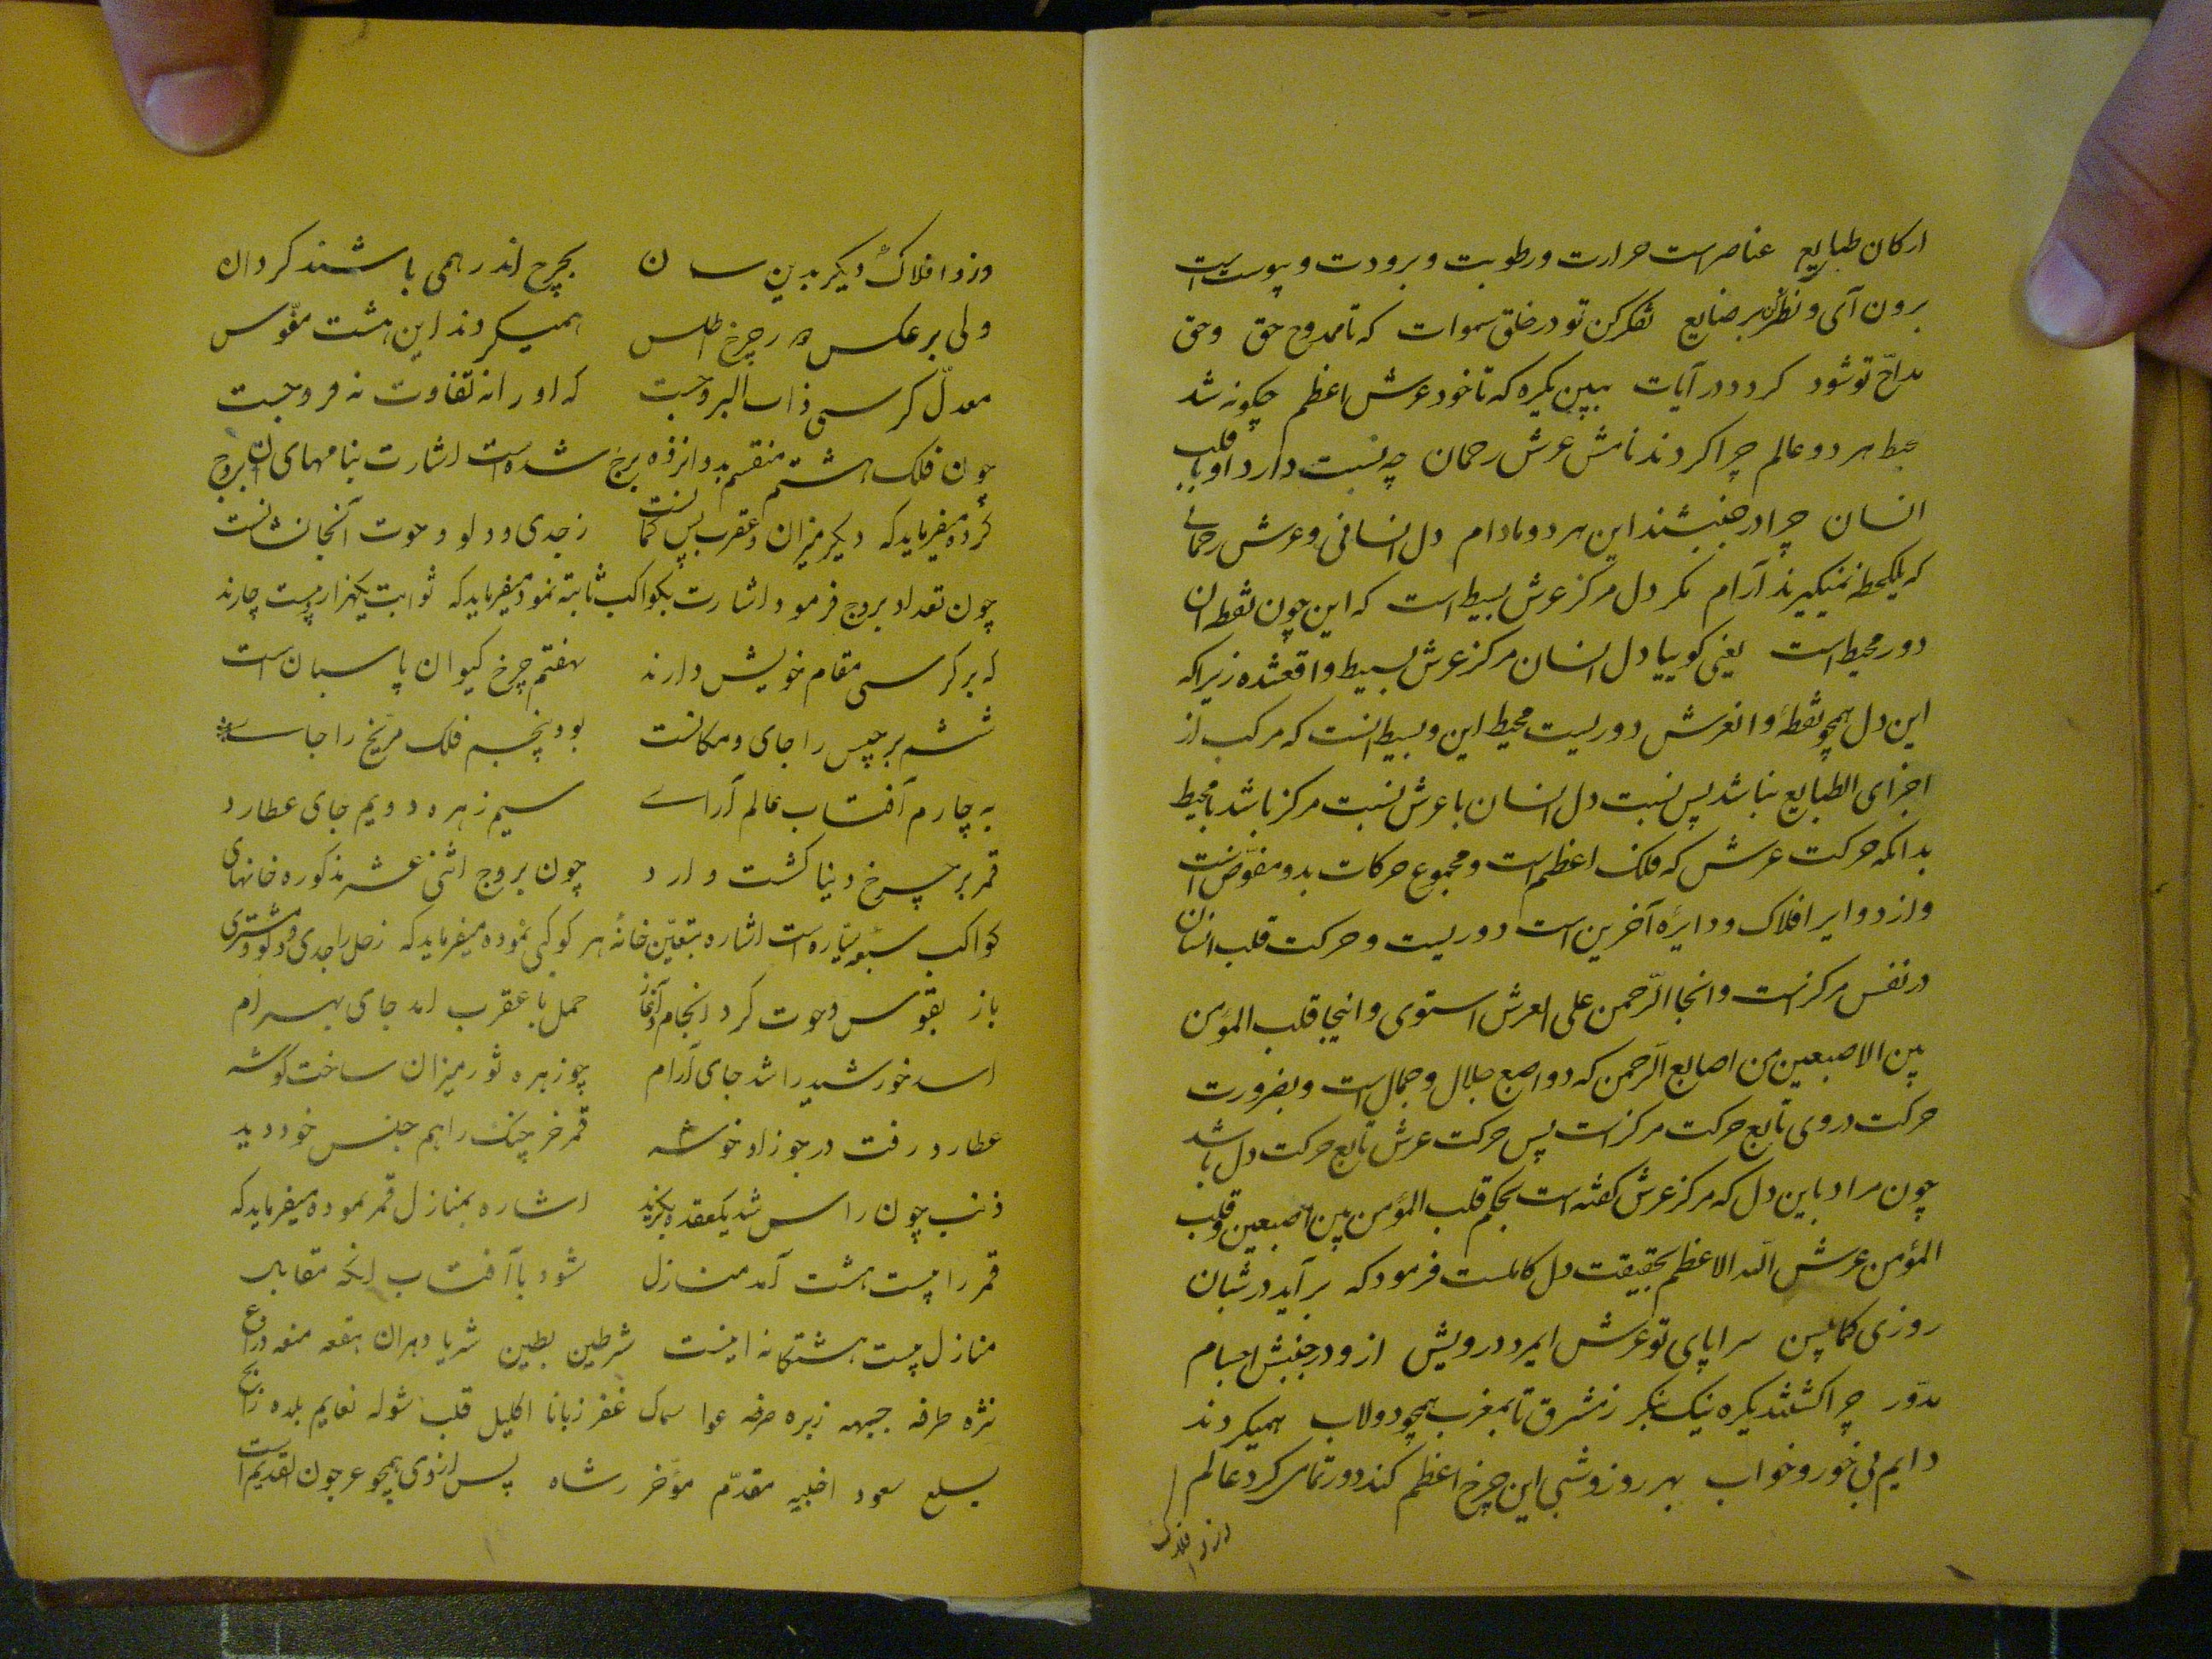 ارکان طبایع عناصر است حرارت و رطوبت و برودت و یبوست است
برون آی و نظر کن بر صنایع تفکر کن تو در خلق سموات که تا ممدوح حق و حق
مداح تو شود کردد در آیات ببین یکره که تا خود عرش اعظم چکونه شد
محیط هر دو عالم چرا کردند نامش عرش رحمان چه نسبت دارد او با قلب
انسان چرا در جنبشند این هر دو مادام دل انسانی و عرش رحمانی
که یکلحظه نمیکیرند آرام مکر دل مرکز عرش بسیط است که این چون نقطه ان
دور محیط است یعنی کوییا دل انسان مرکز عرش بسیط واقعشده زیرا که
این دل همچو نقطه و انعرش دوریست محیط این و بسیط انست که مرکب از
اجزای الطبایع نباشد پس نسبت دل انسان با عرش نسبت مرکز باشد با محیط
بدانکه حرکت عرش که فلک اعظم است و مجموع حرکات بدو مفوّض است
و از دوایر افلاک و دایره آخرین است دوریست و حرکت قلب انسان
در نفس مرکز است و انجا الرّحمن علی العرش استوی و اینجا قلب المؤمن
بین الاصبعین من اصابع الرّحمن که دو اصبع جلال و جمال است و بضرورت
حرکت دروی تابع حرکت مرکز است پس حرکت عرش تابع حرکت دل باشد
چون مراد باین دل که مرکز عرش کفته است بحکم قلب المؤمن بین اصبعین و قلب
المؤمن عرش الله الاعظم بحقیقت دل کاملست فرمود که برآید در شبان
روزی کمابیش سراپای تو عرش ایمرد درویش ازو در جنبش اجسام
مدوّر چرا کشتند یکره نیک بنکر ز مشرق تا بمغرب همچو دولاب همیکردند
دایم بی خور و خواب بهر روز و شبی این چرخ اعظم کند دور تمامی کرد عالم
وزو افلاک
وزو افلاک دیکر بدین سان بچرخ اندر همی باشند کردان
ولی بر عکس دور چرخ اطلس همیکردند این هشت مقوّس
معدّل کرسی ذات البروجست که او را نه تفاوت نه فروجست
چون فلک هشتم منقسم بدوازده برج شده است اشارت بنامهای ان بروج
کرده میفرماید که دیکر میزان و عقرب پس کمانست ز جدی و دلو و حوت آنجا نشانست
چون تعداد بروج فرمود اشارت بکواکب ثابته نمود میفرماید که ثوابت یکهزار و بیست چارند
که بر کرسی مقام خویش دارند بهفتم چرخ کیوان پاسبان است
ششم برجیس را جای و مکانست بود پنجم فلک مریخ را جای
به چارم آفتاب عالم آرای سیم زهره دویم جای عطارد
قمر بر چرخ دنیا کشت وارد چون بروج اثنی عشر مذکوره خانهای
کواکب سبعه سیّاره است اشاره بتعیّن خانه هر کوکبی نموده میفرماید که زحل را جدی و دلو و مشتری
باز بقوس و حوت کرد انجام و آغاز حمل با عقرب امد جای بهرام
اسد خورشید را شد جای آرام چو زهره ثور میزان ساخت کوشه
عطارد رفت در جوزا و خوشه قمر خرچنک را هم جنس خود دید
ذنب چون راس شد یکعقده بکزید اشاره بمنازل قمر نموده میفرماید که
قمر را بیست هشت آمد منازل شود با آفتاب انکه مقابل
منازل بیست هشتکانه اینست شرطین بطین ثریا دبران هقعه هنعه ذراع
نثره طرفه جبهه زبره صرفه عوا سماک غفر زبانا اکلیل قلب شوله نعایم بلده ذابح
بلع سعود اخبیه مقدّم مؤخر رشاه پس از وی همچو عرجون القدیم است